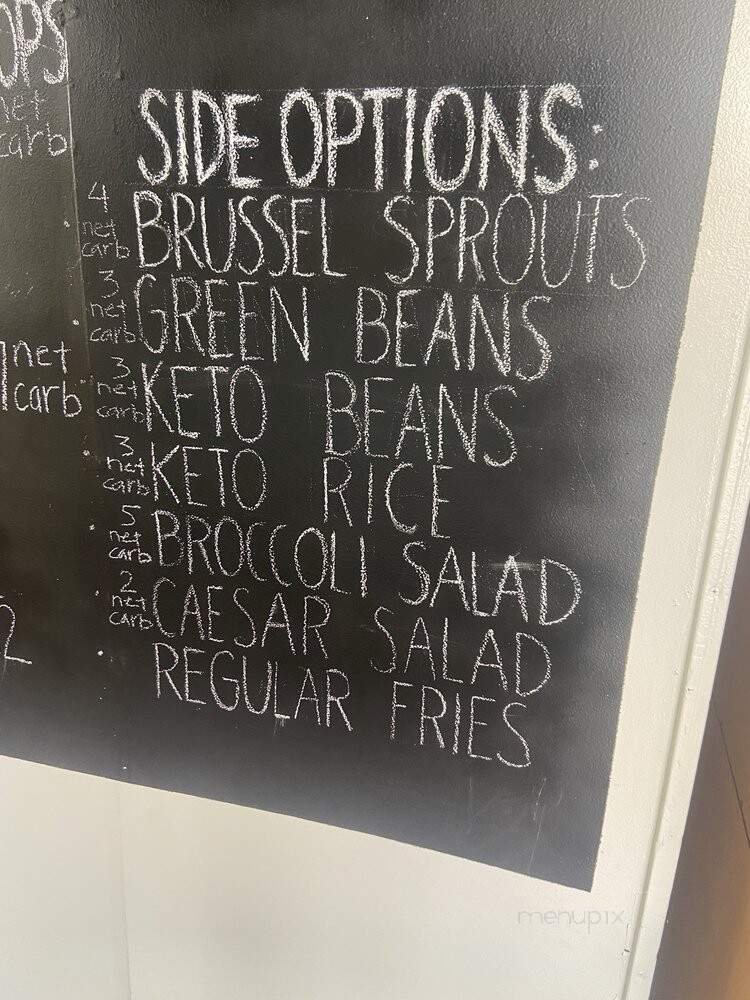 OPS
net
carb
SIDE OPTIONS:
4 net carb BRUSSEL SPROUTS
3 net carb GREEN BEANS
3 net carb KETO BEANS
3 net carb KETO RICE
5 net carb BROCCOLI SALAD
2 net carb CAESAR SALAD
REGULAR FRIES
net
carb
2
menupix